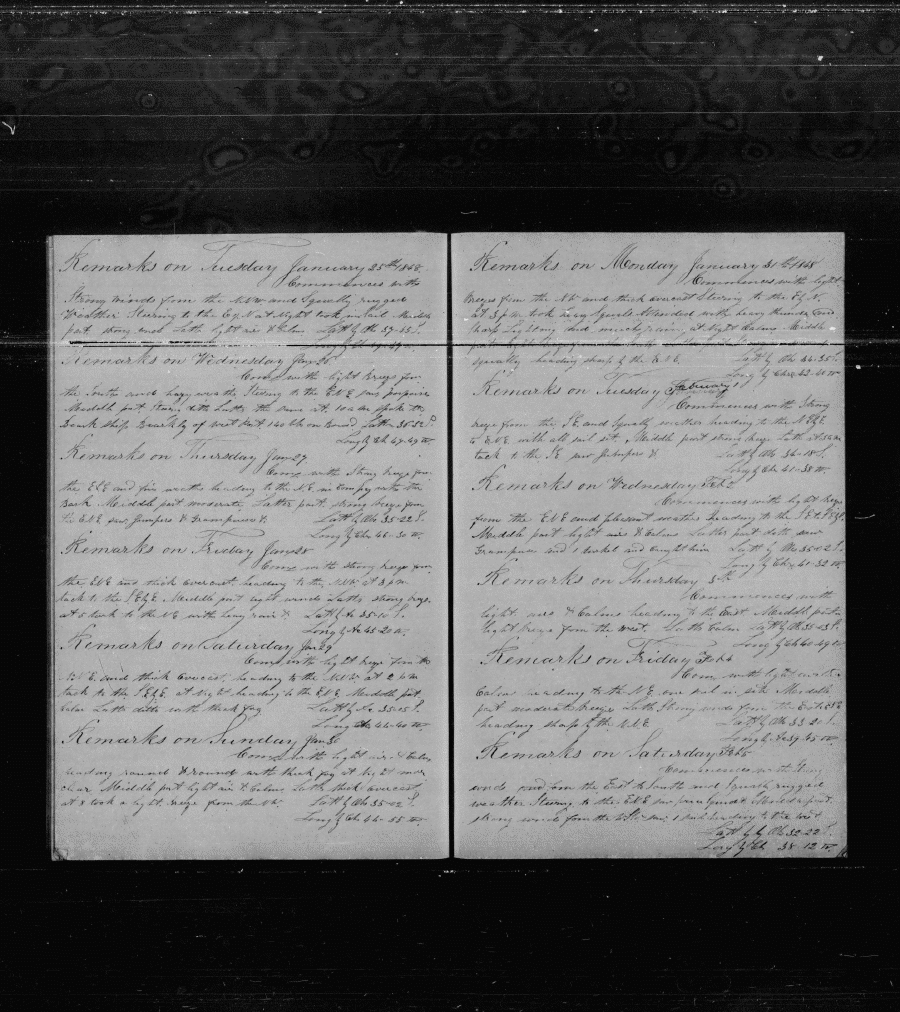 Remarks on Tuesday January 25th 1848
Commences with
Strong winds from the NW and Squally rugged
Weather Steering to the E by N at Night took in sail Middle
part strong winds Latter light air & Calm Latt by Obs 37-45 S.
Remarks on Wednesday Jan 26
Comes with light breeze from
the South and hazy weather Steering to the E by E saw porpoises
Middle part Latter the same at 10 am spoke the
Bark ship of West Port 140 bbls on Board Latt 35-52 S.
Long by Ch 47-47 W.
Remarks on Thursday Jan 27
Comes with Strong breeze from
the E by E and fine weather heading to the N.E. in Company with the
Bark Middle part moderate Latter part strong breeze from
to E.N.E. saw Jumpers & Grampuses &. Latt by Obs 35-22 S.
Long by Ch 46-30 W.
Remarks on Friday Jan 28
Comes with strong breeze from
the E.N.E and thick overcast, heading to the N.N.W. at 3 pm
tack to the S.E by E Middle part light winds Latter strong breeze
at 5 tack to the NE with heavy rain &. Latt by Ac 35-10 S.
Long by Ac 45 20 W.
Remarks on Saturday Jan 29
Comes with light breeze from the
N.E. and thick Overcast, heading to the N.N.W. at 2 pm
tack to the S.E by E. at Night heading to the E.N.E. Middle part
Calm Latter ditto with thick fog Latt by Ac 35-15 S.
Long Ac 44-40 W.
Remarks on Sunday Jan 30
Comes with light air & Calm,
heading round & round with thick fog at Night more
clear Middle part light air & Calms Latter thick overcast
at 8 took a light breeze from the NW. Latt by Obs 35-02 S.
Long by Ch 44-55 W.
Remarks on Monday January 31th 1848
Commences with light
breezes from the NW and thick overcast Steering to the E by N.
at 3 pm took in Squalls Attended with heavy thunder and
sharp Lightning and much rain, at Night Calms Middle
squally heading sharp by the N.E. Latt by Obs 34-35 S.
Long by Ch 43-40 W.
Remarks on Tuesday February 1
Commences with Strong
breeze from the SE and Squally weather heading to the N.E by E
to E.N.E with all sail set, Middle part strong breeze Latter at
tack to the SE saw Jumpers &. Latt by Obs 34-18 S.
Long by Ch 41-38 W.
Remarks on Wednesday Feb 2
Commences with light breeze
from the E.N.E and pleasant weather heading to the
Middle part light air & Calms Latter part ditto saw
Grampus and caught him Latt by Obs 35-02 S.
Long by Ch 41-32 W.
Remarks on Thursday 3th
Commences with
light airs & Calms heading to the East Middle part
light breeze from the west. Latter Calm Latt by Ob 35-43 S.
Long by Ch 40-49 W.
Remarks on Friday Feb 4
Com. with light winds
Calm heading to the N.E. one sail in sight Middle
part moderate breeze Latter Strong winds from the
heading sharp by the N.N.E. Latt by Obs 33 21 S.
Long by Ac 39-45 W.
Remarks on Saturday Feb 5
Commences with Strong
winds from the East to South and Squally rugged
weather Steering to the E.N.E. saw Middle part
strong winds from the heading to the west
Latt by Ob 32-22 S.
Long by Ch 38-12 W.